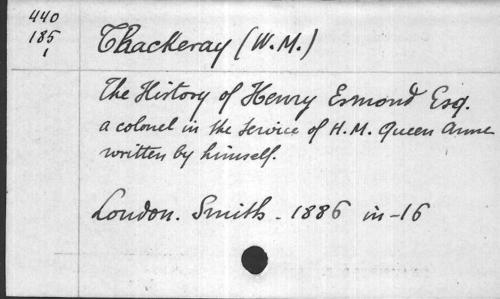 440
185
1
Thackeray (W.M.)
The History of Henry Esmond Esq.
a colonel in the service of H.M. Queen Anne
written by himself.
London. Smith - 1886 in-16